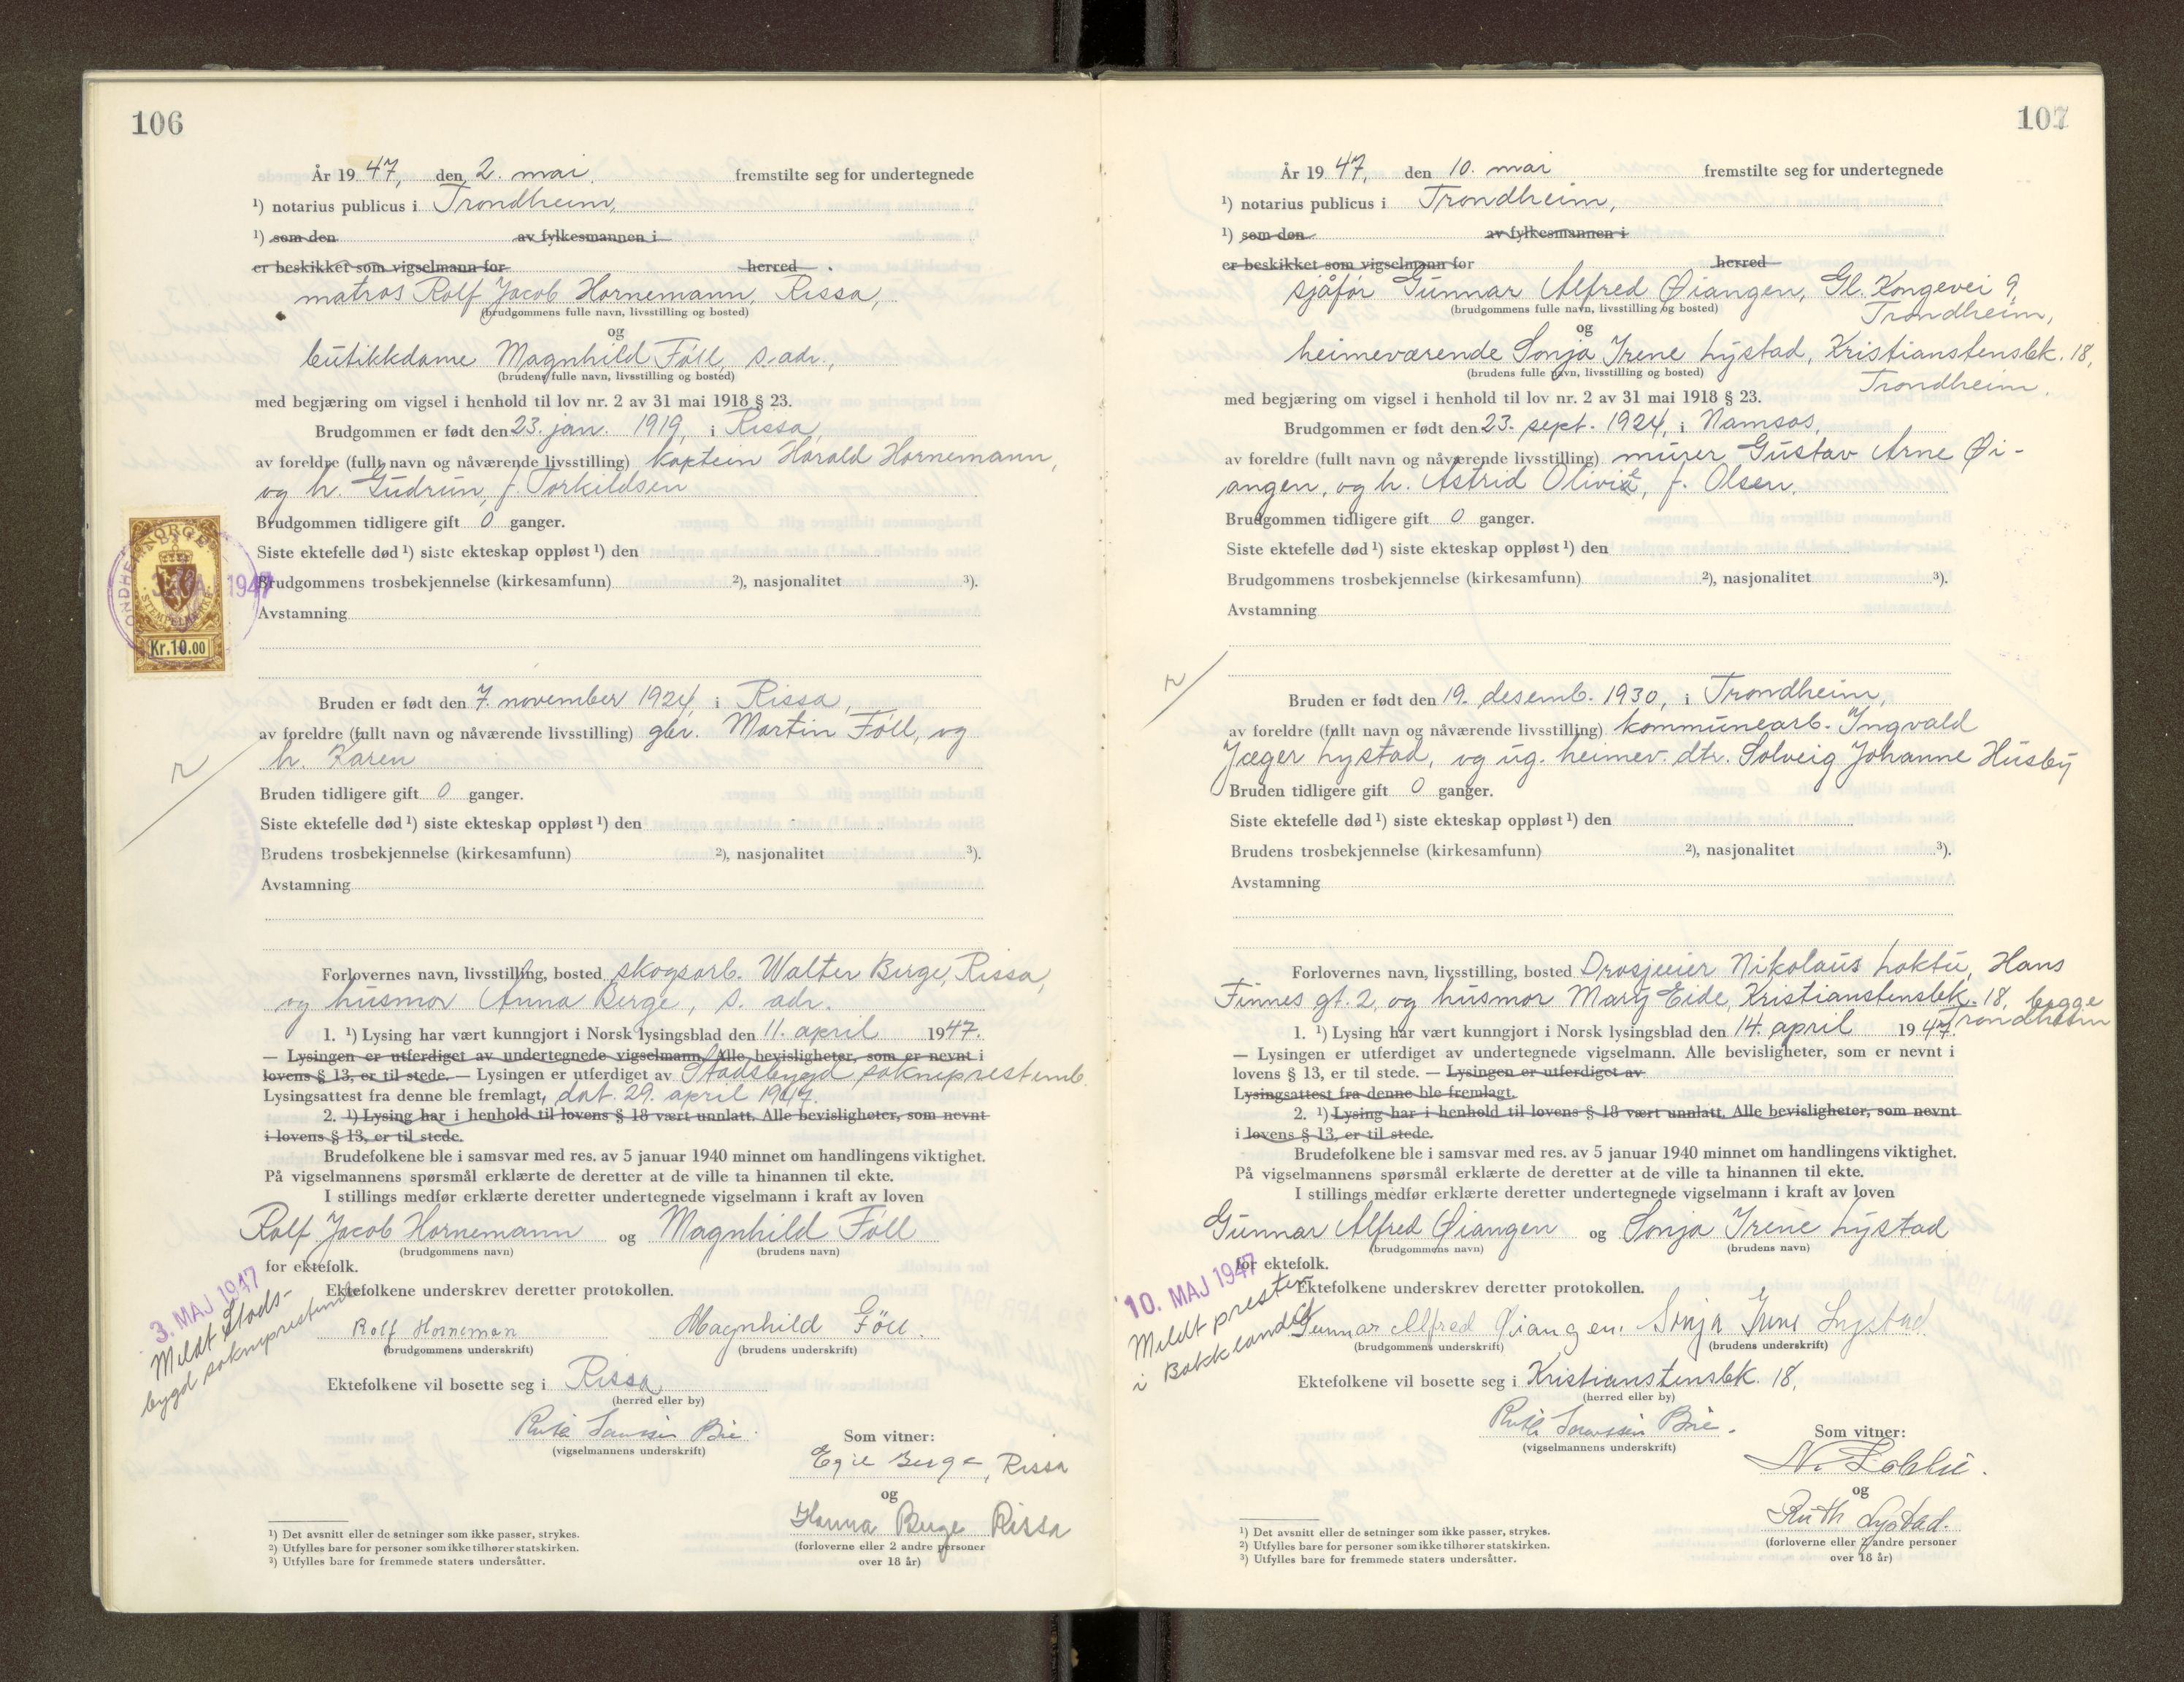 106
År 1947, den 2. mai fremstilte seg for undertegnede
¹) notarius publicus i Trondheim,
¹) som den av fylkesmannen i
er beskikket som vigselmann for herred
matros Rolf Jacob Hornemann, Rissa,
(brudgommens fulle navn, livsstilling og bosted)
og
butikkdame Magnhild Føll, s. adr.,
(brudens fulle navn, livsstilling og bosted)
med begjæring om vigsel i henhold til lov nr. 2 av 31 mai 1918 § 23.
Brudgommen er født den 23. jan. 1919, i Rissa,
av foreldre (fullt navn og nåværende livsstilling) kaptein Harald Hornemann,
og h. Gudrun, f. Torkildsen
Brudgommen tidligere gift 0 ganger.
Siste ektefelle død ¹) siste ekteskap oppløst ¹) den
Brudgommens trosbekjennelse (kirkesamfunn) ²), nasjonalitet ³).
Avstamning
NORGE
STEMPELMERKE
Kr.10.00
Bruden er født den 7. november 1924 i Rissa,
av foreldre (fullt navn og nåværende livsstilling) gbr. Martin Føll, og
h. Karen
Bruden tidligere gift 0 ganger.
Siste ektefelle død ¹) siste ekteskap oppløst ¹) den
Brudens trosbekjennelse (kirkesamfunn) ²), nasjonalitet ³).
Avstamning
Forlovernes navn, livsstilling, bosted skogsarb. Walter Berge, Rissa,
og husmor Anna Berge, s. adr.
1. ¹) Lysing har vært kunngjort i Norsk lysingsblad den 11. april 1947.
— Lysingen er utferdiget av undertegnede vigselmann. Alle bevisligheter, som er nevnt i
lovens § 13, er til stede. — Lysingen er utferdiget av Stadsbygd sokneprestemb.
Lysingsattest fra denne ble fremlagt, dat. 29. april 1947.
2. ¹) Lysing har i henhold til lovens § 18 vært unnlatt. Alle bevisligheter, som nevnt
i lovens § 13, er til stede.
Brudefolkene ble i samsvar med res. av 5 januar 1940 minnet om handlingens viktighet.
På vigselmannens spørsmål erklærte de deretter at de ville ta hinannen til ekte.
I stillings medfør erklærte deretter undertegnede vigselmann i kraft av loven
Rolf Jacob Hornemann og Magnhild Føll
(brudgommens navn) (brudens navn)
for ektefolk.
Ektefolkene underskrev deretter protokollen.
3. MAJ 1947
Meldt Stads-
bygd sokneprestemb.
Rolf Horneman Magnhild Föll.
(brudgommens underskrift) (brudens underskrift)
Ektefolkene vil bosette seg i Rissa
(herred eller by)
(vigselmannens underskrift)
Som vitner:
Egil Berge, Rissa
og
Hanna Berge Rissa
(forloverne eller 2 andre personer
over 18 år)
¹) Det avsnitt eller de setninger som ikke passer, strykes.
²) Utfylles bare for personer som ikke tilhører statskirken.
³) Utfylles bare for fremmede staters undersåtter.
107
År 1947, den 10. mai fremstilte seg for undertegnede
¹) notarius publicus i Trondheim,
¹) som den av fylkesmannen i
er beskikket som vigselmann for herred
sjåfør Gunnar Alfred Øiangen, Gl. Kongevei 9,
Trondheim,
(brudgommens fulle navn, livsstilling og bosted)
og
heimeværende Sonja Irene Lystad, Kristianstensbk. 18,
Trondheim.
(brudens fulle navn, livsstilling og bosted)
med begjæring om vigsel i henhold til lov nr. 2 av 31 mai 1918 § 23.
Brudgommen er født den 23. sept. 1924, i Namsos,
av foreldre (fullt navn og nåværende livsstilling) murer Gustav Arne Øi-
angen, og h. Astrid Olivie, f. Olsen.
Brudgommen tidligere gift 0 ganger.
Siste ektefelle død ¹) siste ekteskap oppløst ¹) den
Brudgommens trosbekjennelse (kirkesamfunn) ²), nasjonalitet ³).
Avstamning
Bruden er født den 19. desemb. 1930, i Trondheim,
av foreldre (fullt navn og nåværende livsstilling) kommunearb. Ingvald
Jæger Lystad, og ug. heimev. dtr. Solveig Johanne Husby
Bruden tidligere gift 0 ganger.
Siste ektefelle død ¹) siste ekteskap oppløst ¹) den
Brudens trosbekjennelse (kirkesamfunn) ²), nasjonalitet ³).
Avstamning
Forlovernes navn, livsstilling, bosted Drosjeeier Nikolaus Loktu, Hans
Finnes gt. 2, og husmor Mary Eide, Kristianstensbk. 18, begge
Trondheim
1. ¹) Lysing har vært kunngjort i Norsk lysingsblad den 14. april 1947.
— Lysingen er utferdiget av undertegnede vigselmann. Alle bevisligheter, som er nevnt i
lovens § 13, er til stede. — Lysingen er utferdiget av
Lysingsattest fra denne ble fremlagt.
2. ¹) Lysing har i henhold til lovens § 18 vært unnlatt. Alle bevisligheter, som nevnt
i lovens § 13, er til stede.
Brudefolkene ble i samsvar med res. av 5 januar 1940 minnet om handlingens viktighet.
På vigselmannens spørsmål erklærte de deretter at de ville ta hinannen til ekte.
I stillings medfør erklærte deretter undertegnede vigselmann i kraft av loven
Gunnar Alfred Øiangen og Sonja Irene Lystad
(brudgommens navn) (brudens navn)
for ektefolk.
Ektefolkene underskrev deretter protokollen.
10. MAJ 1947
Meldt presten
i Bakklandet
Gunnar Alfred Øiangen. Sonja Irene Lystad
(brudgommens underskrift) (brudens underskrift)
Ektefolkene vil bosette seg i Kristianstensbk. 18,
(herred eller by)
(vigselmannens underskrift)
Som vitner:
N. Loktu.
og
Ruth Lystad.
(forloverne eller 2 andre personer
over 18 år)
¹) Det avsnitt eller de setninger som ikke passer, strykes.
²) Utfylles bare for personer som ikke tilhører statskirken.
³) Utfylles bare for fremmede staters undersåtter.